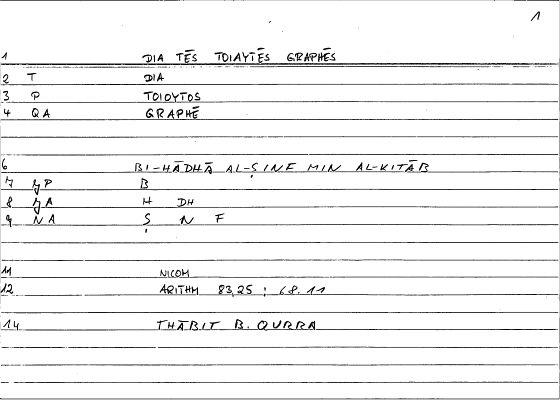 1
1 DIA TĒS TOIAYTĒS GRAPHĒS
2 T DIA
3 P TOIOYTOS
4 QA GRAPHĒ
6 BI-HĀDHĀ AL-ṢINF MIN AL-KITĀB
7 YP B
8 YA H DH
9 NA Ṣ N F
11 NICOM
12 ARITHM 83,25 ; 68.11
14 THĀBIT B. QURRA